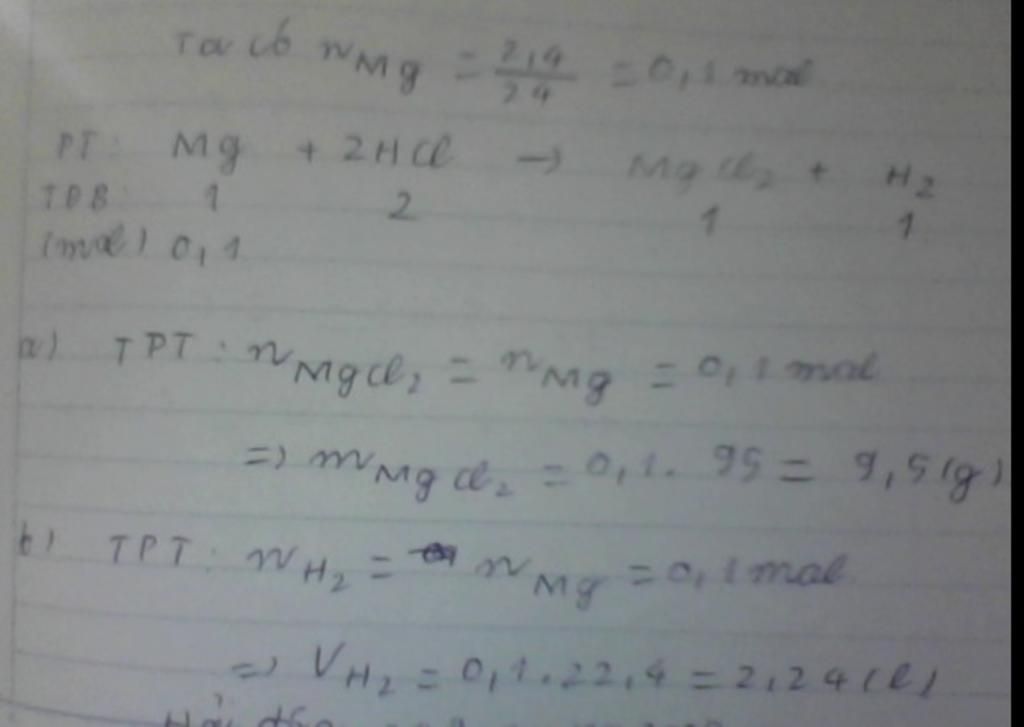 Ta có n Mg = 2,4/24 = 0,1 mol
PT: Mg + 2HCl → MgCl₂ + H₂
TĐB: 1 2 1 1
(mol) 0,1
a) TPT: n MgCl₂ = n Mg = 0,1 mol
=> m MgCl₂ = 0,1. 95 = 9,5 (g)
b) TPT: n H₂ = n Mg = 0,1 mol
=> V H₂ = 0,1.22,4 = 2,24 (l)